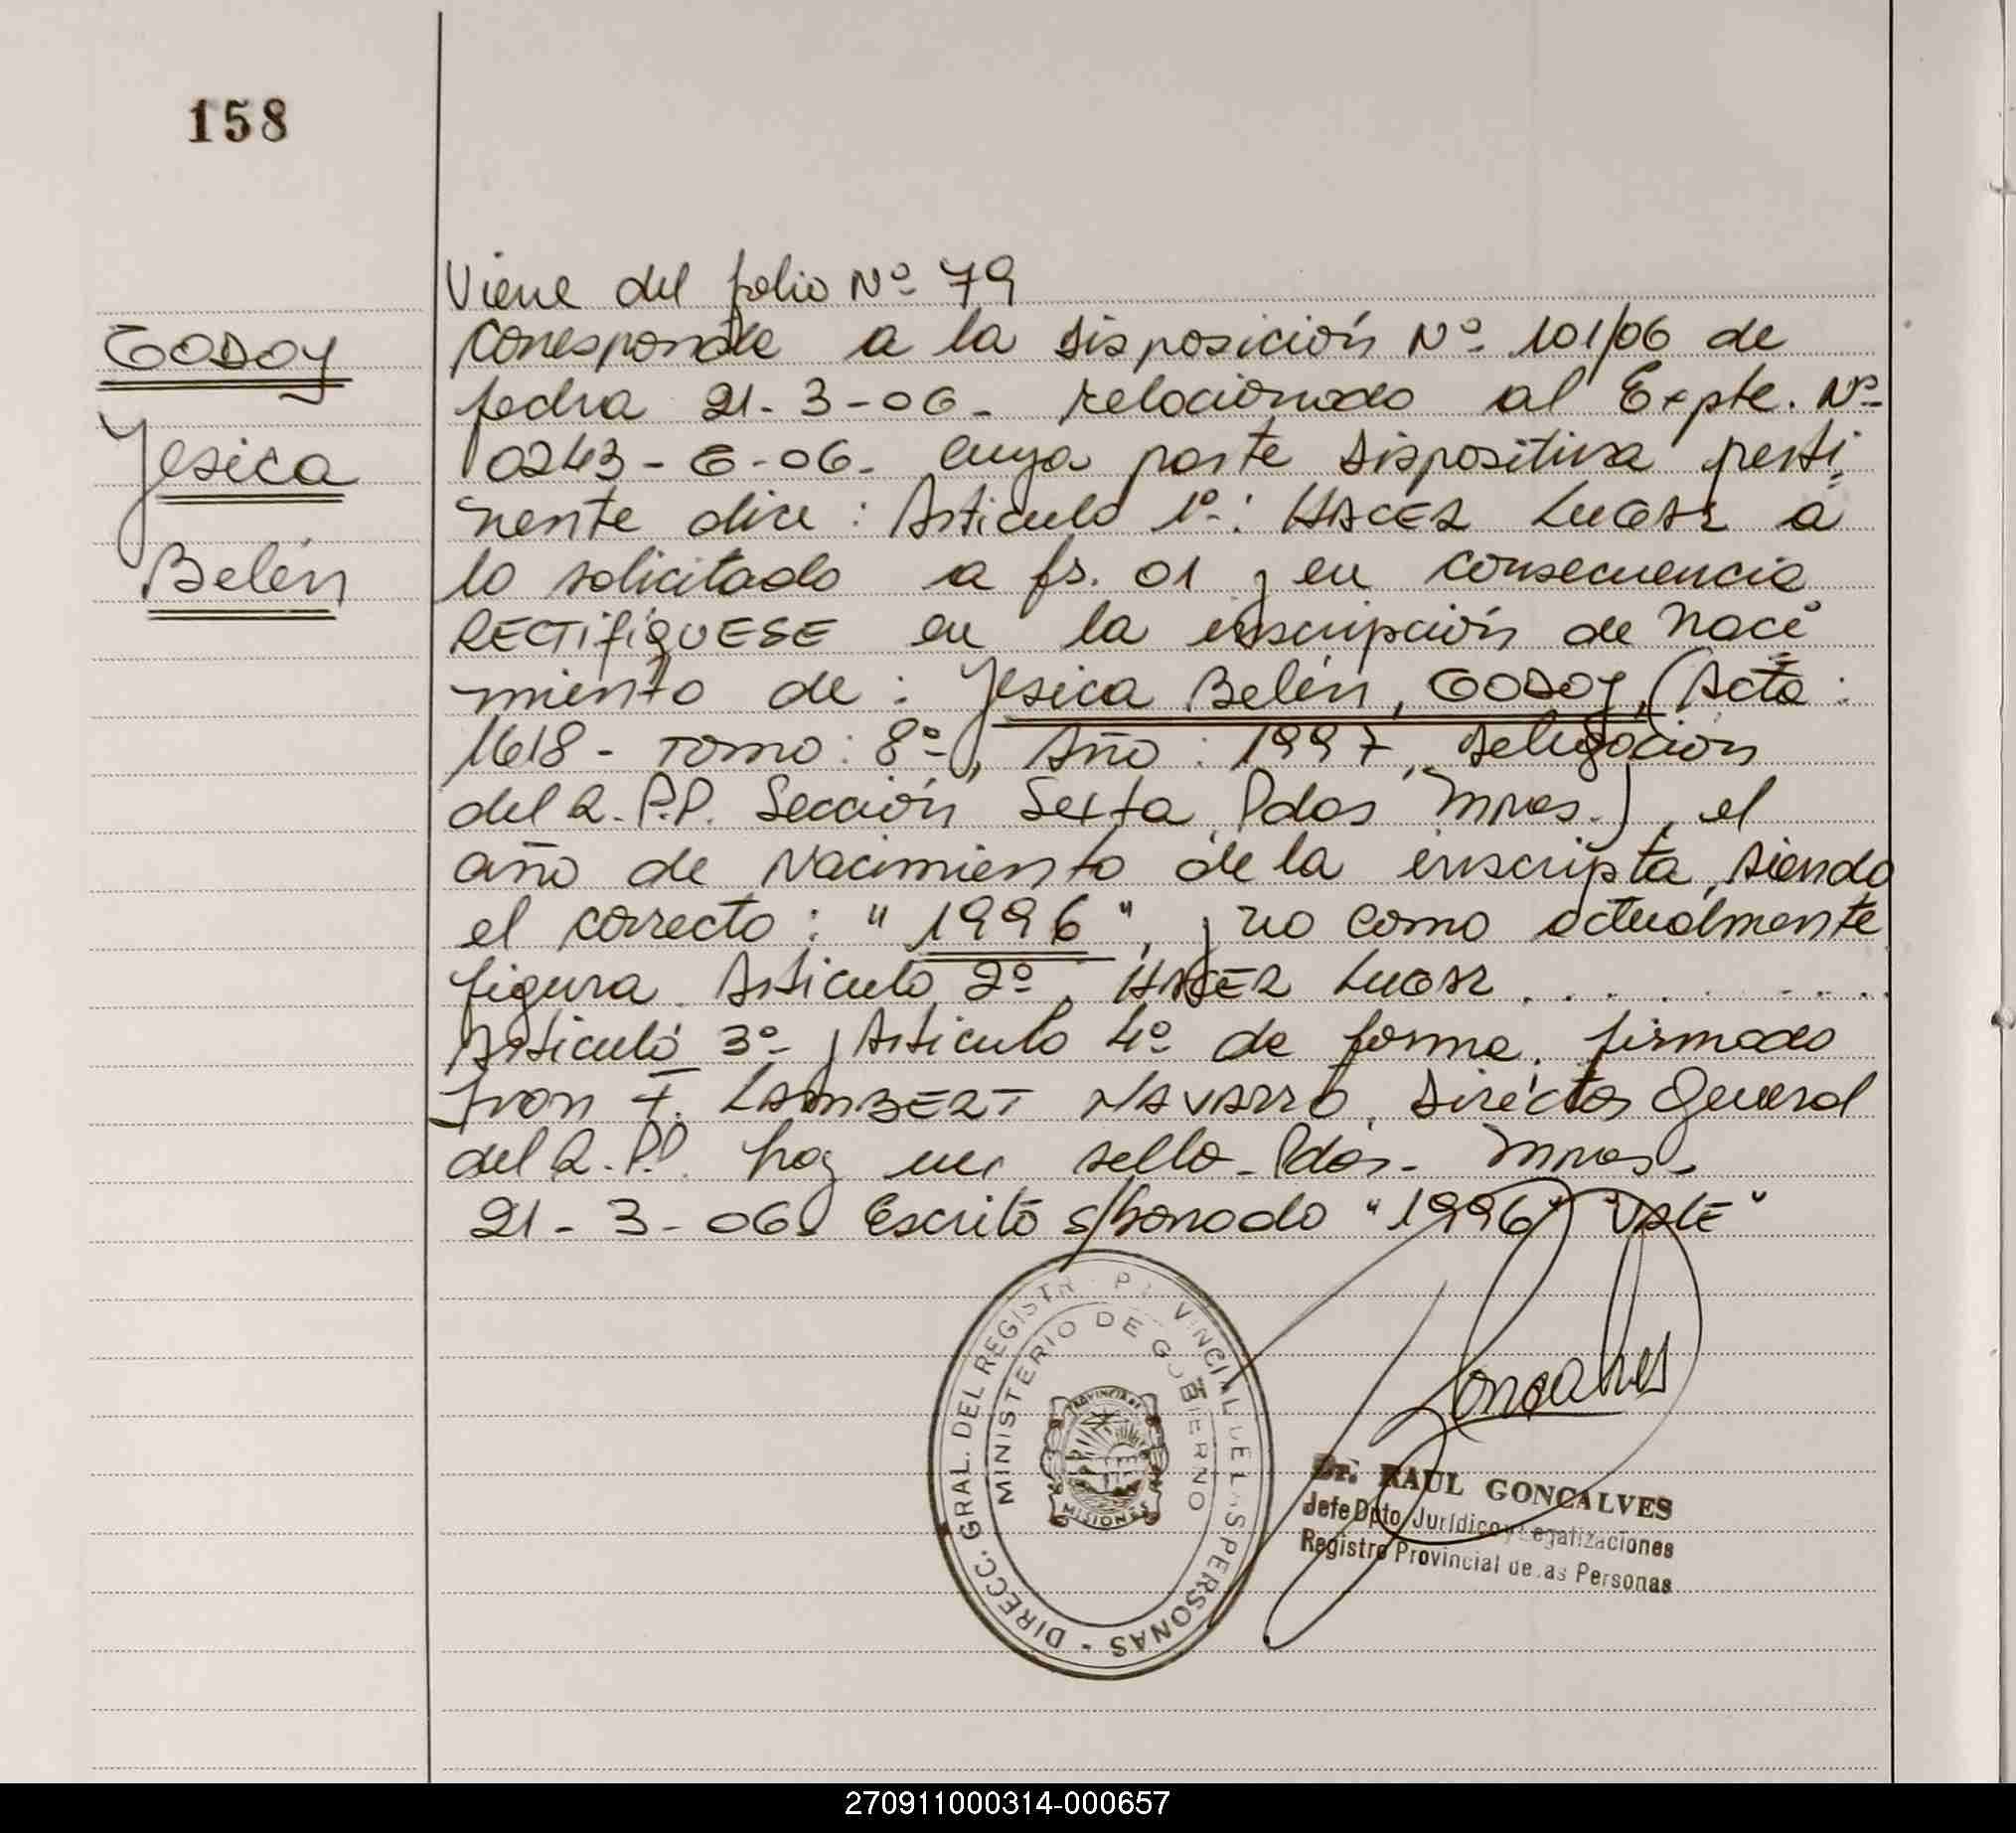 158
GODOY
Jesica
Belén
Viene del folio Nº 79
Corresponde a la Disposición Nº 101/06 de
fecha 21-3-06- relacionado al Expte. Nº
0243-G-06- cuya parte Dispositiva perti-
nente dice: Articulo 1º: HACER LUGAR a
lo solicitado a fs. 01 y en consecuencia
RECTIFIQUESE en la inscripción de naci
miento de: Jesica Belén, GODOY, (Acta:
1618- Tomo: 8º-, Año: 1997, Delegación
del R.P.P. Sección Sexta, Pdas Mnes.), el
año de Nacimiento de la inscripta, siendo
el correcto: "1996", y no como actualmente
figura. Articulo 2º, HACER LUGAR . . . . . . .
Articulo 3º- y Articulo 4º de forma. firmado
Ivon F. LAMBERT NAVARRO, Director General
del R.P.P. hay un sello- Pdas- Mnes-
21-3-06 Escrito s/borrado "1996" "VALE"
DIRECC. GRAL. DEL REGISTR PROVINCIAL DE LAS PERSONAS -
MINISTERIO DE GOBIERNO
PROVINCIA DE
MISIONES
Goncalves
Dr. RAUL GONCALVES
Jefe Dpto. Jurídico y Legalizaciones
Registro Provincial de las Personas
270911000314-000657